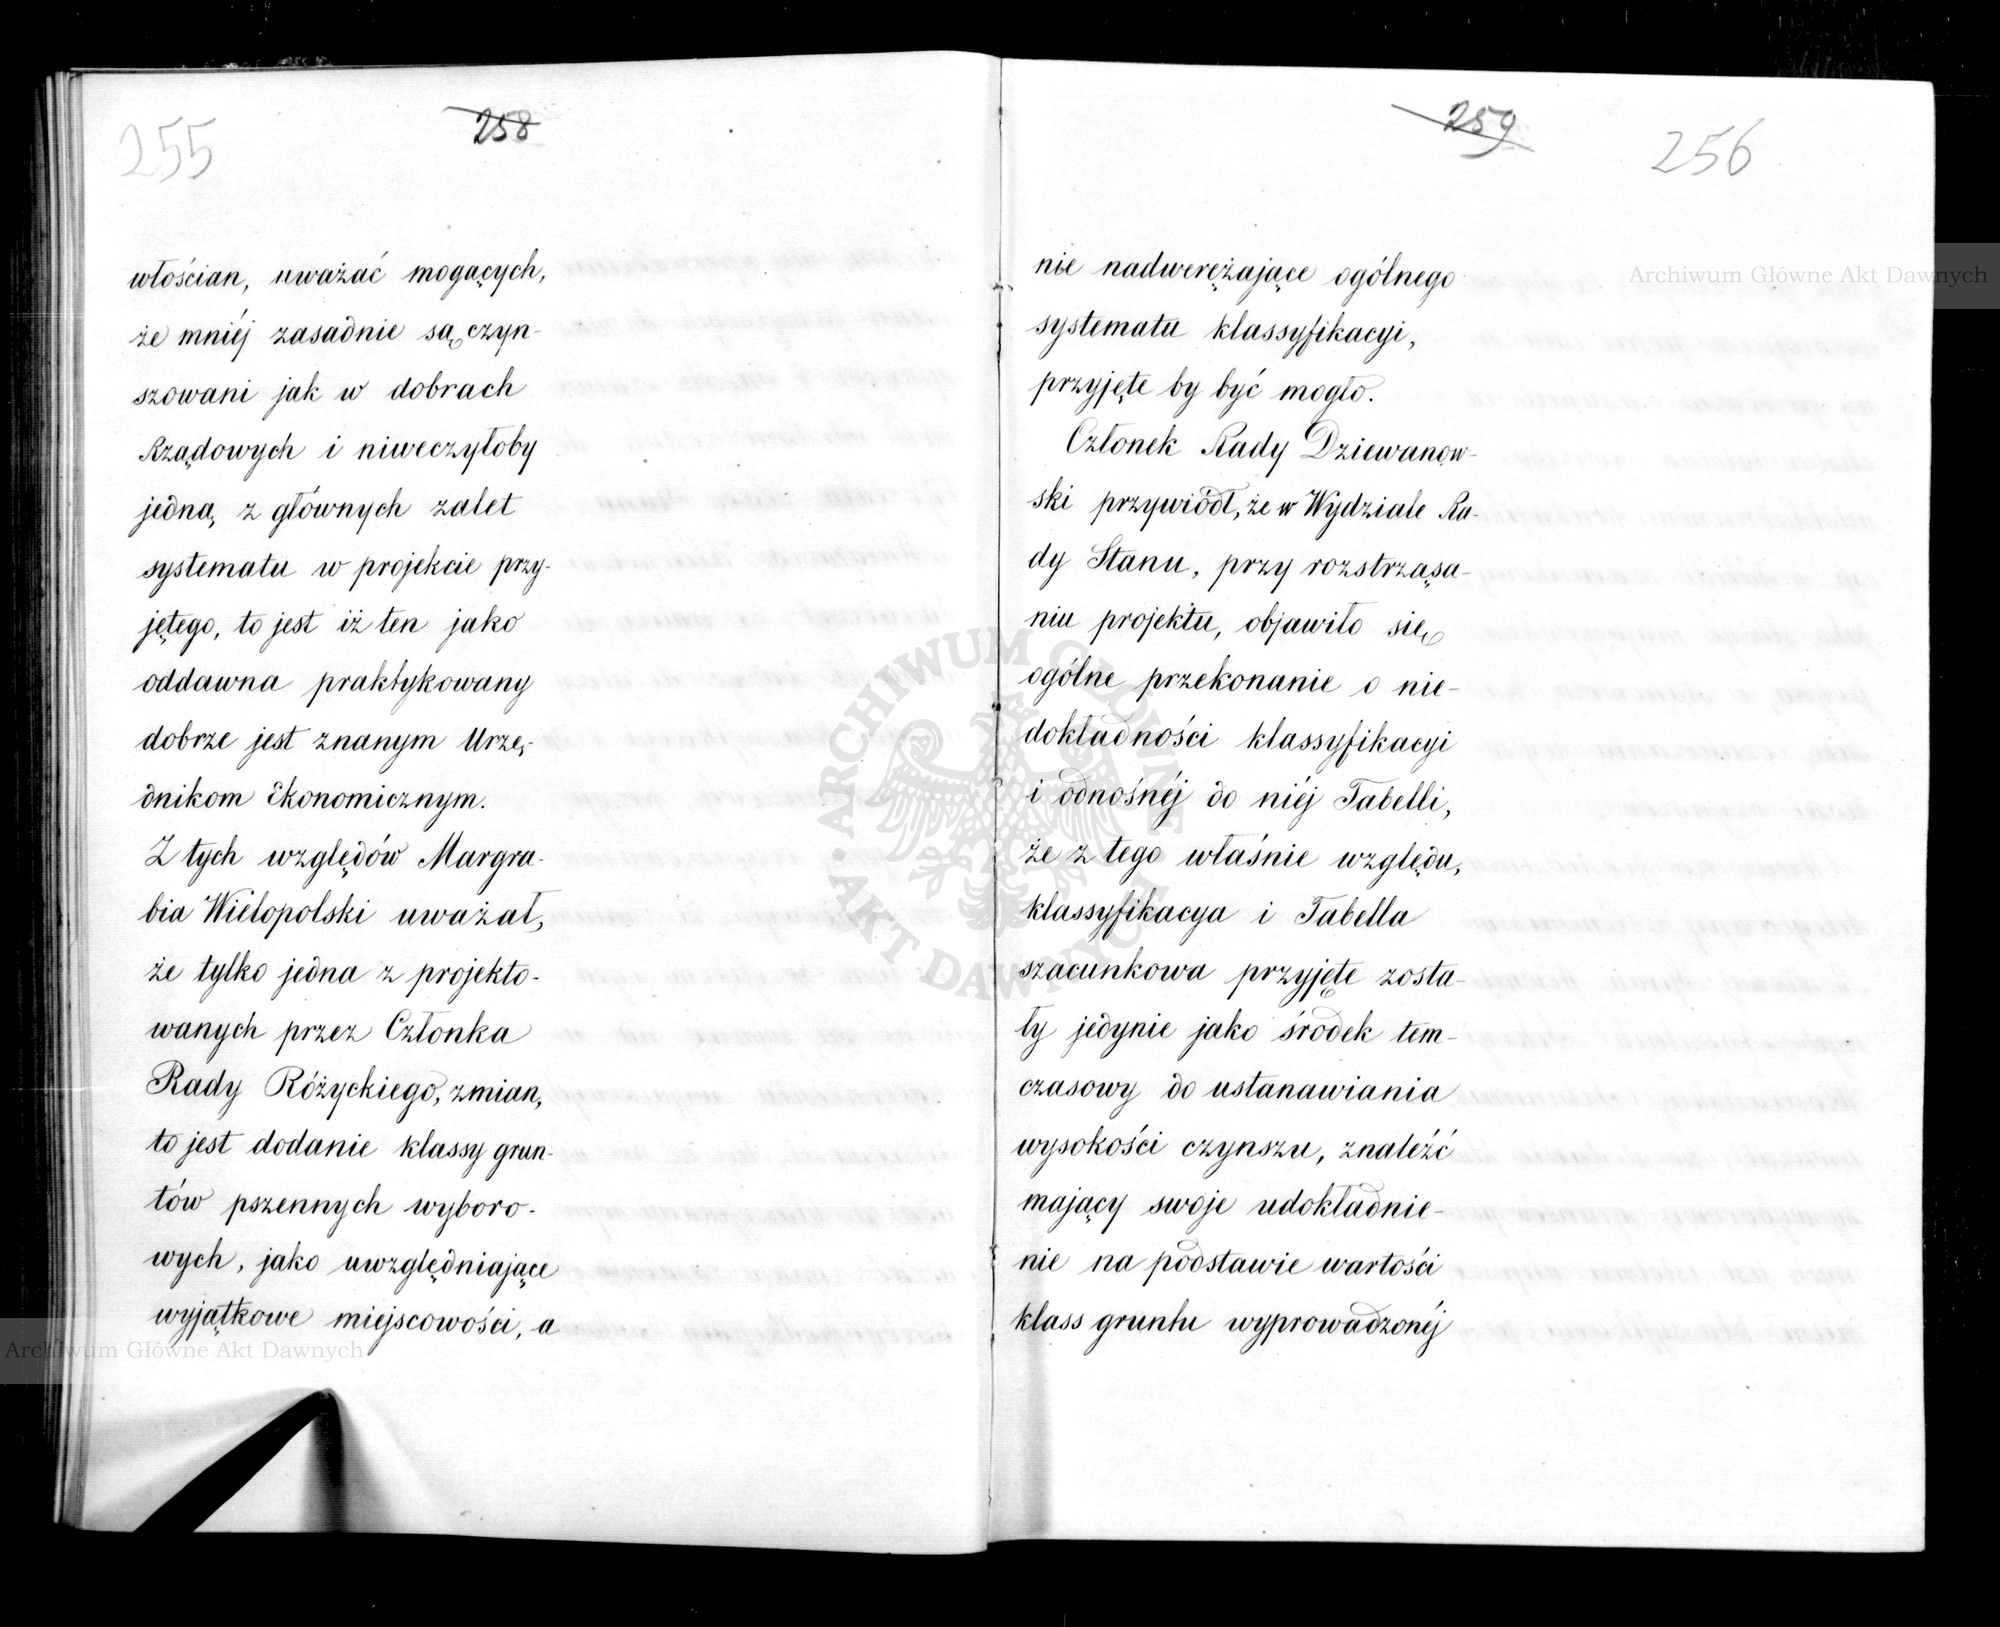 255
258
włościan, uważać mogących,
że mniéj zasadnie są czyn-
szowani jak w dobrach
Rządowych i niweczyłoby
jedną z głównych zalet
systematu w projekcie przy-
jętego, to jest iż ten jako
oddawna praktykowany
dobrze jest znanym Urzę-
dnikom Ekonomicznym.
Z tych względów Margra-
bia Wielopolski uważał,
że tylko jedna z projekto-
wanych przez Członka
Rady Różyckiego, zmian,
to jest dodanie klassy grun-
tów pszennych wyboro-
wych, jako uwzględniające
wyjątkowe miejscowości, a
259
256
nie nadwerężające ogólnego
systematu klassyfikacyi,
przyjęte by być mogło.
Członek Rady Dziewanow-
ski przywiódł, że w Wydziale Ra-
dy Stanu, przy rozstrząsa-
niu projektu, objawiło się
ogólne przekonanie o nie-
dokładności klassyfikacyi
i odnośnéj do niéj Tabelli,
że z tego właśnie względu,
klassyfikacya i Tabella
szacunkowa przyjęte zosta-
ły jedynie jako środek tem-
czasowy do ustanawiania
wysokości czynszu, znaleźć
mający swoje udokładnie-
nie na podstawie wartości
klass gruntu wyprowadzonéj
Archiwum Główne Akt Dawnych
ARCHIWUM GŁÓWNE AKT DAWNYCH
Archiwum Główne Akt Dawnych